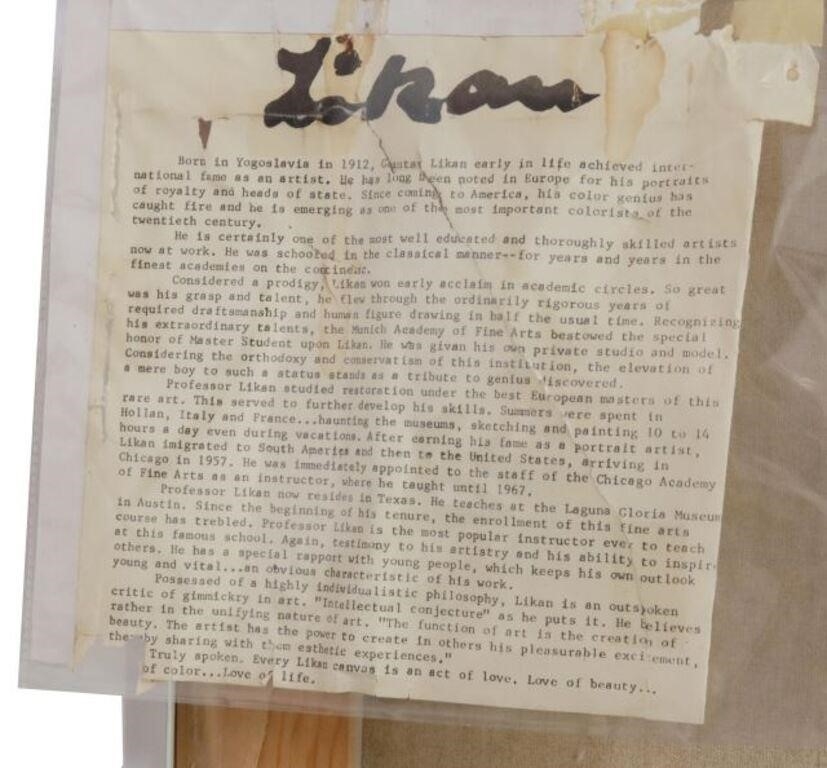 Likan
Born in Yogoslavia in 1912, Gustav Likan early in life achieved inter-
national fame as an artist. He has long been noted in Europe for his portraits
of royalty and heads of state. Since coming to America, his color genius has
caught fire and he is emerging as one of the most important colorists of the
twentieth century.
He is certainly one of the most well educated and thoroughly skilled artists
now at work. He was schooled in the classical manner--for years and years in the
finest academies on the continent.
Considered a prodigy, Likan won early acclaim in academic circles. So great
was his grasp and talent, he flew through the ordinarily rigorous years of
required draftsmanship and human figure drawing in half the usual time. Recognizing
his extraordinary talents, the Munich Academy of Fine Arts bestowed the special
honor of Master Student upon Likan. He was givan his own private studio and model.
Considering the orthodoxy and conservatism of this institution, the elevation of
a mere boy to such a status stands as a tribute to genius discovered.
Professor Likan studied restoration under the best European masters of this
rare art. This served to further develop his skills. Summers were spent in
Hollan, Italy and France...haunting the museums, sketching and painting 10 to 14
hours a day even during vacations. After earning his fame as a portrait artist,
Likan imigrated to South America and then to the United States, arriving in
Chicago in 1957. He was immediately appointed to the staff of the Chicago Academy
of Fine Arts as an instructor, where he taught until 1967.
Professor Likan now resides in Texas. He teaches at the Laguna Gloria Museum
in Austin. Since the beginning of his tenure, the enrollment of this fine arts
course has trebled. Professor Likan is the most popular instructor ever to teach
at this famous school. Again, testimony to his artistry and his ability to inspire
others. He has a special rapport with young people, which keeps his own outlook
young and vital...an obvious characteristic of his work.
Possessed of a highly individualistic philosophy, Likan is an outspoken
critic of gimmickry in art. "Intellectual conjecture" as he puts it. He believes
rather in the unifying nature of art. "The function of art is the creation of
beauty. The artist has the power to create in others his pleasurable excitement,
thereby sharing with them esthetic experiences."
Truly spoken. Every Likan canvas is an act of love. Love of beauty...
of color...Love of life.